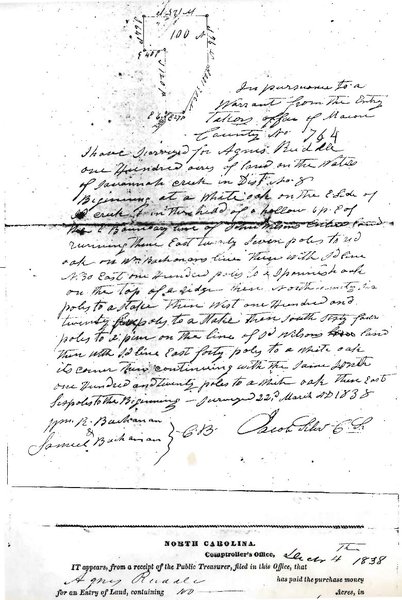 100 A
In pursuance to a
Warrant from the Entry
Takers office of Macon
County No 764
I have Surveyed for Agnis Ruddle
one Hundred acres of land on the Waters
of Savannah creek in Dist. No 8
Beginning at a White oak on the E Side of
Sd creek in the head of a hollow 4 p. E of
the E Boundary line of John Wilsons land
running thence East twenty Seven poles to a
oak on Wm Buchanans line then with Sd line
N. 30 East one Hundred poles to a Spanish oak
on the top of a ridge then North
poles to a Stake then West one Hundred and
twenty poles to a Stake then South Sixty four
poles to a pine on the line of Sd Wilsons land
then with Sd line East forty poles to a White oak
its corner then continuing with the Same South
one Hundred and twenty poles to a White oak then East
Six poles to the Beginning — Surveyed 22d March AD 1838
Wm. R. Buchanan
&
Samuel Buchanan
C. B.
Jacob C. S.
NORTH CAROLINA.
Comptroller's Office, Decr 4th 1838
IT appears, from a receipt of the Public Treasurer, filed in this Office, that
Agnis Ruddle has paid the purchase money
for an Entry of Land, containing NO Acres, in